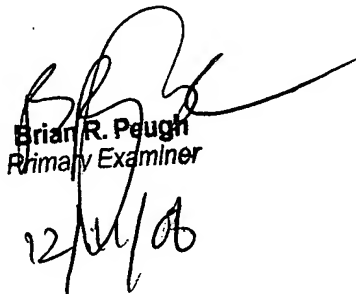 Brian R. Peugh
Primary Examiner
12/11/06